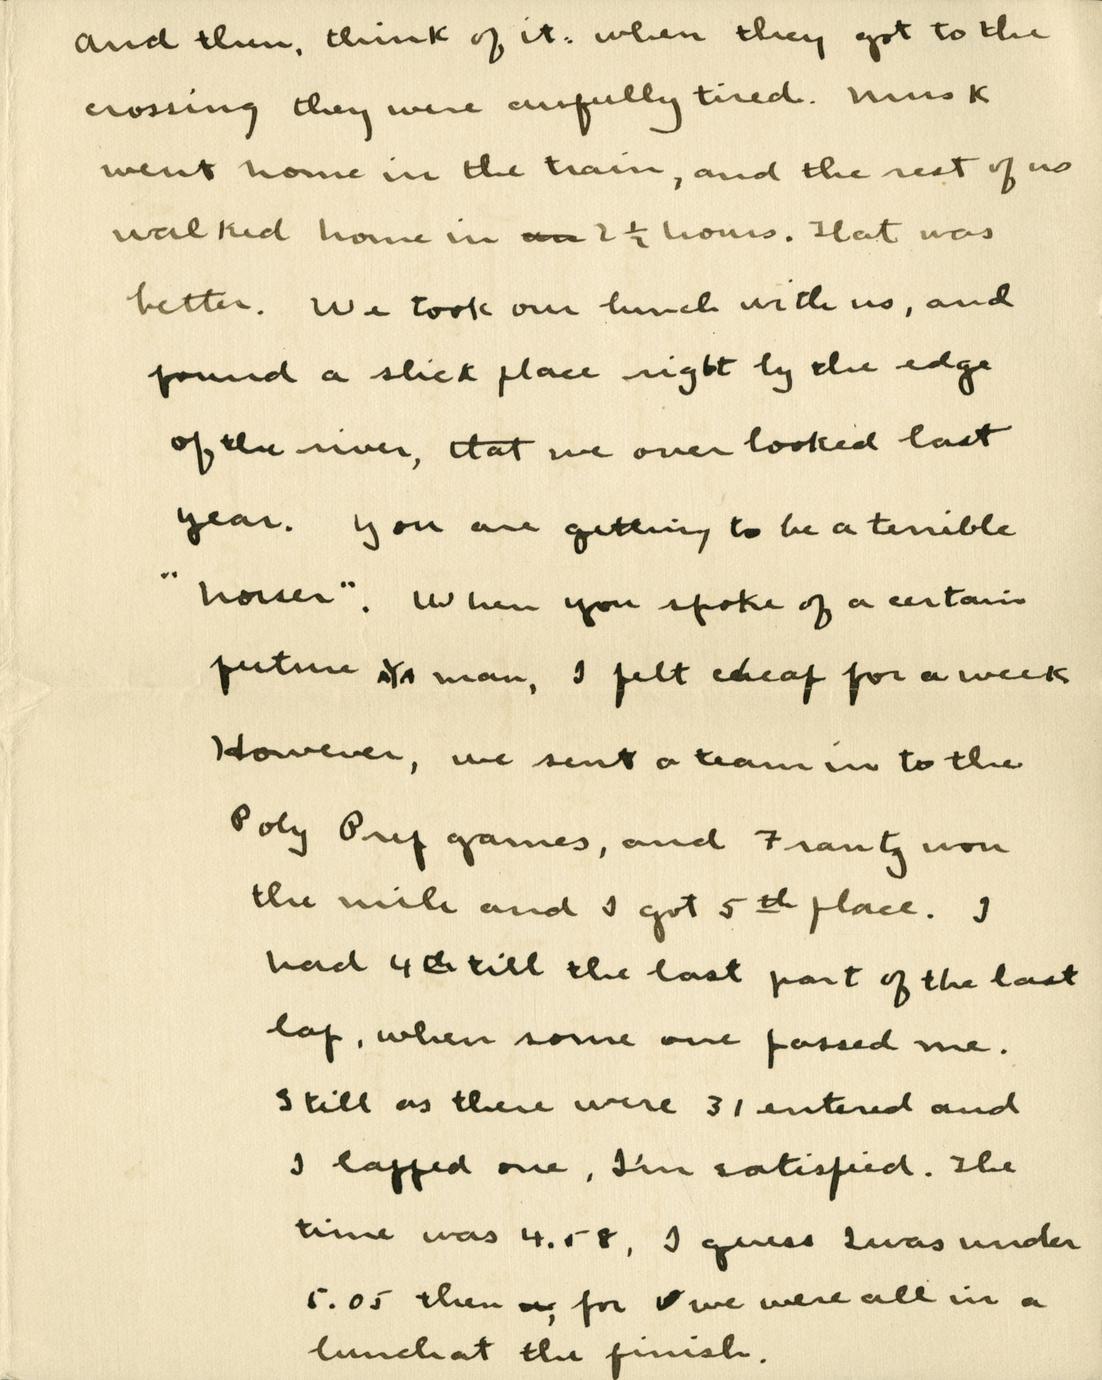 and then, think of it: when they got to the
crossing they were awfully tired. Munk
went home in the train, and the rest of us
walked home in 2 ½ hours. That was
better. We took our lunch with us, and
found a slick place right by the edge
of the river, that we over looked last
year. You are getting to be a terrible
"horser". When you spoke of a certain
future man, I felt cheap for a week
However, we sent a team in to the
Poly Prep games, and Frantz won
the mile and I got 5th place. I
had 4th till the last part of the last
lap, when some one passed me.
Still as there were 31 entered and
I lapped one, I'm satisfied. The
time was 4.58, I guess I was under
5.05 then, for we were all in a
bunch at the finish.